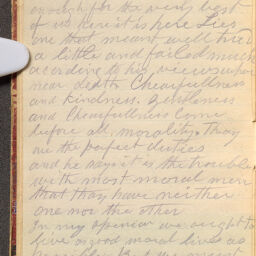 enough for the very best
of us here it is here Lies
one that meant well tried
a little and failed much
according to his views upon
near death Chearfullness
and kindness. Gentleness
and Chearfullness Come
before all morality. Thay
are the perfect duties
and he says it is the trouble
with most moral men
that thay have neither
one nor the other
In my openion we ought to
live as good moral lives as